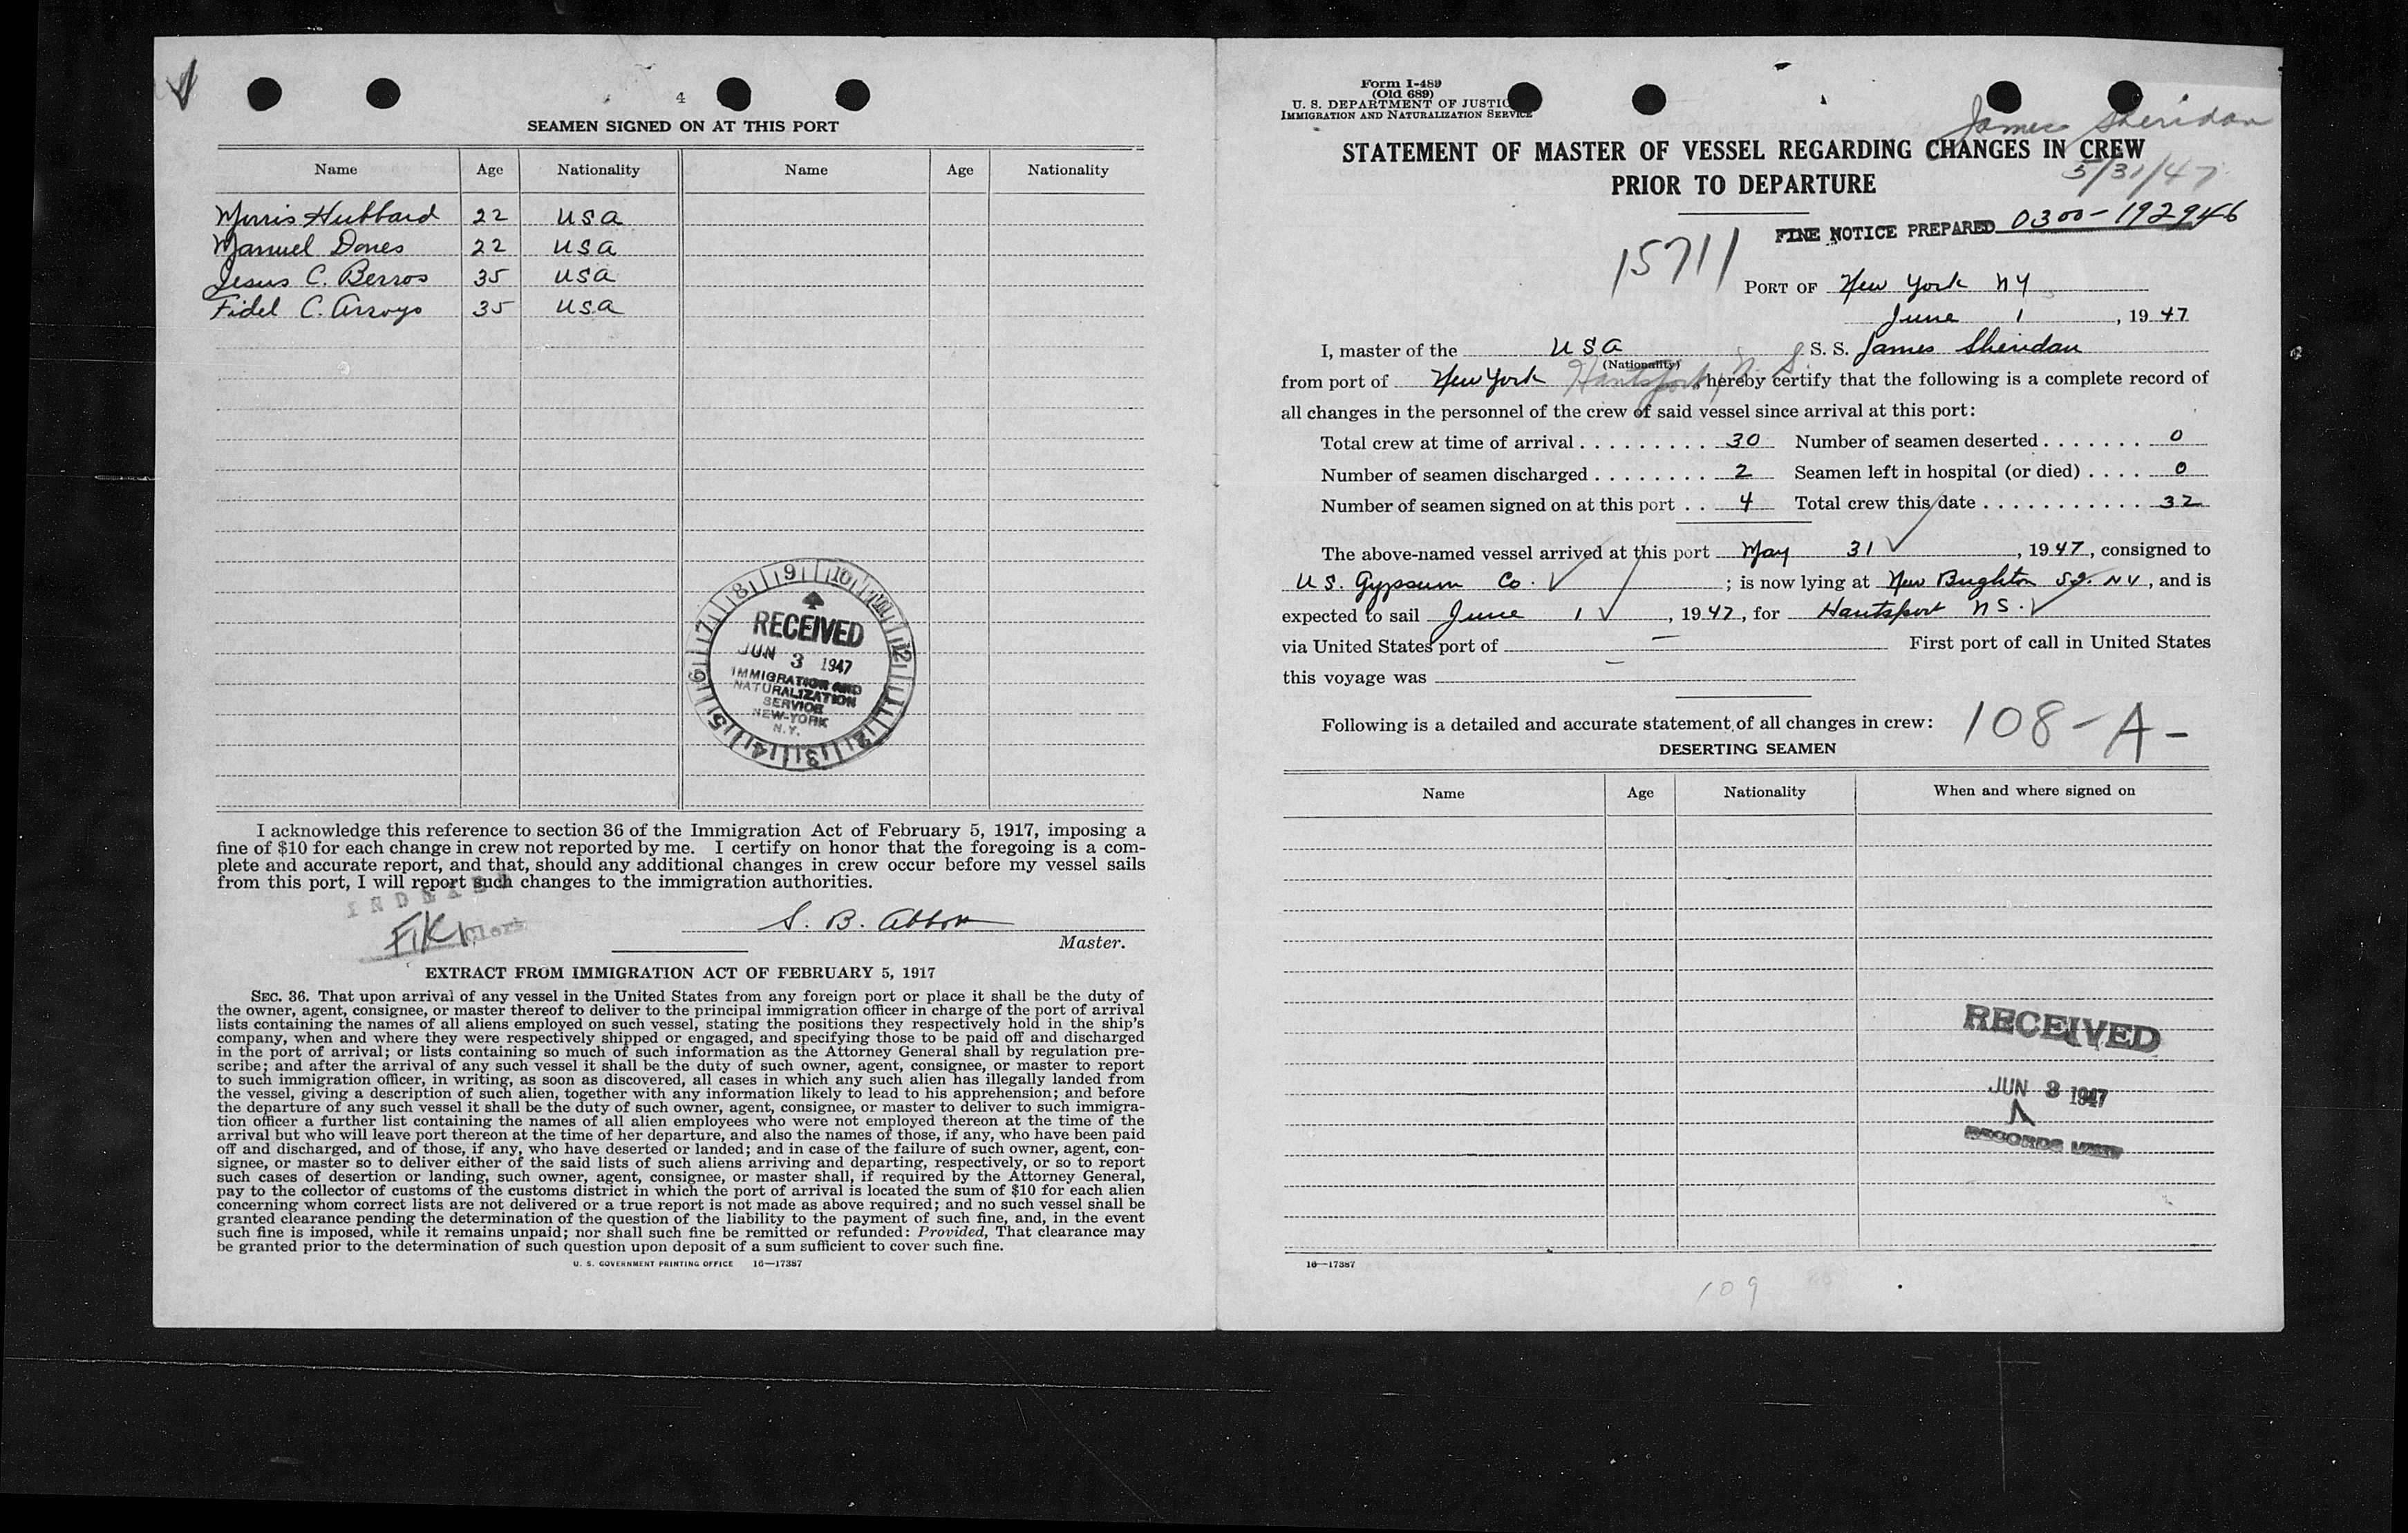 4
SEAMEN SIGNED ON AT THIS PORT
Name Age Nationality Name Age Nationality
Morris Hubbard 22 USA
Manuel Dones 22 USA
Jesus C. Berros 35 USA
Fidel C. Arroyo 35 USA
9 10 11 12 1 2 3 4 5 6 7 8
RECEIVED
JUN 3 1947
IMMIGRATION AND
NATURALIZATION
SERVICE
NEW-YORK
N.Y.
I acknowledge this reference to section 36 of the Immigration Act of February 5, 1917, imposing a
fine of $10 for each change in crew not reported by me. I certify on honor that the foregoing is a com-
plete and accurate report, and that, should any additional changes in crew occur before my vessel sails
from this port, I will report such changes to the immigration authorities.
Clerk
S. B. Abbott
Master.
EXTRACT FROM IMMIGRATION ACT OF FEBRUARY 5, 1917
SEC. 36. That upon arrival of any vessel in the United States from any foreign port or place it shall be the duty of
the owner, agent, consignee, or master thereof to deliver to the principal immigration officer in charge of the port of arrival
lists containing the names of all aliens employed on such vessel, stating the positions they respectively hold in the ship's
company, when and where they were respectively shipped or engaged, and specifying those to be paid off and discharged
in the port of arrival; or lists containing so much of such information as the Attorney General shall by regulation pre-
scribe; and after the arrival of any such vessel it shall be the duty of such owner, agent, consignee, or master to report
to such immigration officer, in writing, as soon as discovered, all cases in which any such alien has illegally landed from
the vessel, giving a description of such alien, together with any information likely to lead to his apprehension; and before
the departure of any such vessel it shall be the duty of such owner, agent, consignee, or master to deliver to such immigra-
tion officer a further list containing the names of all alien employees who were not employed thereon at the time of the
arrival but who will leave port thereon at the time of her departure, and also the names of those, if any, who have been paid
off and discharged, and of those, if any, who have deserted or landed; and in case of the failure of such owner, agent, con-
signee, or master so to deliver either of the said lists of such aliens arriving and departing, respectively, or so to report
such cases of desertion or landing, such owner, agent, consignee, or master shall, if required by the Attorney General,
pay to the collector of customs of the customs district in which the port of arrival is located the sum of $10 for each alien
concerning whom correct lists are not delivered or a true report is not made as above required; and no such vessel shall be
granted clearance pending the determination of the question of the liability to the payment of such fine, and, in the event
such fine is imposed, while it remains unpaid; nor shall such fine be remitted or refunded: Provided, That clearance may
be granted prior to the determination of such question upon deposit of a sum sufficient to cover such fine.
U. S. GOVERNMENT PRINTING OFFICE 16—17387
Form I-489
(Old 689)
U. S. DEPARTMENT OF JUSTICE
IMMIGRATION AND NATURALIZATION SERVICE
James Sheridan
5/31/47
STATEMENT OF MASTER OF VESSEL REGARDING CHANGES IN CREW
PRIOR TO DEPARTURE
FINE NOTICE PREPARED 0300-192946
15711
PORT OF New York NY
June 1, 1947
I, master of the USA S. S. James Sheridan
(Nationality)
from port of New York Hantsport, N. S. hereby certify that the following is a complete record of
all changes in the personnel of the crew of said vessel since arrival at this port:
Total crew at time of arrival . . . . . . . . . 30 Number of seamen deserted . . . . . . . 0
Number of seamen discharged . . . . . . . . 2 Seamen left in hospital (or died) . . . . 0
Number of seamen signed on at this port . . 4 Total crew this date . . . . . . . . . . . . 32
The above-named vessel arrived at this port May 31, 1947, consigned to
U S. Gypsum Co. ; is now lying at New Brighton SI. NY, and is
expected to sail June 1, 1947, for Hantsport NS.
via United States port of — First port of call in United States
this voyage was —
Following is a detailed and accurate statement of all changes in crew: 108-A-
DESERTING SEAMEN
Name Age Nationality When and where signed on
RECEIVED
JUN 3 1947
A
RECORDS UNIT
16—17387
109